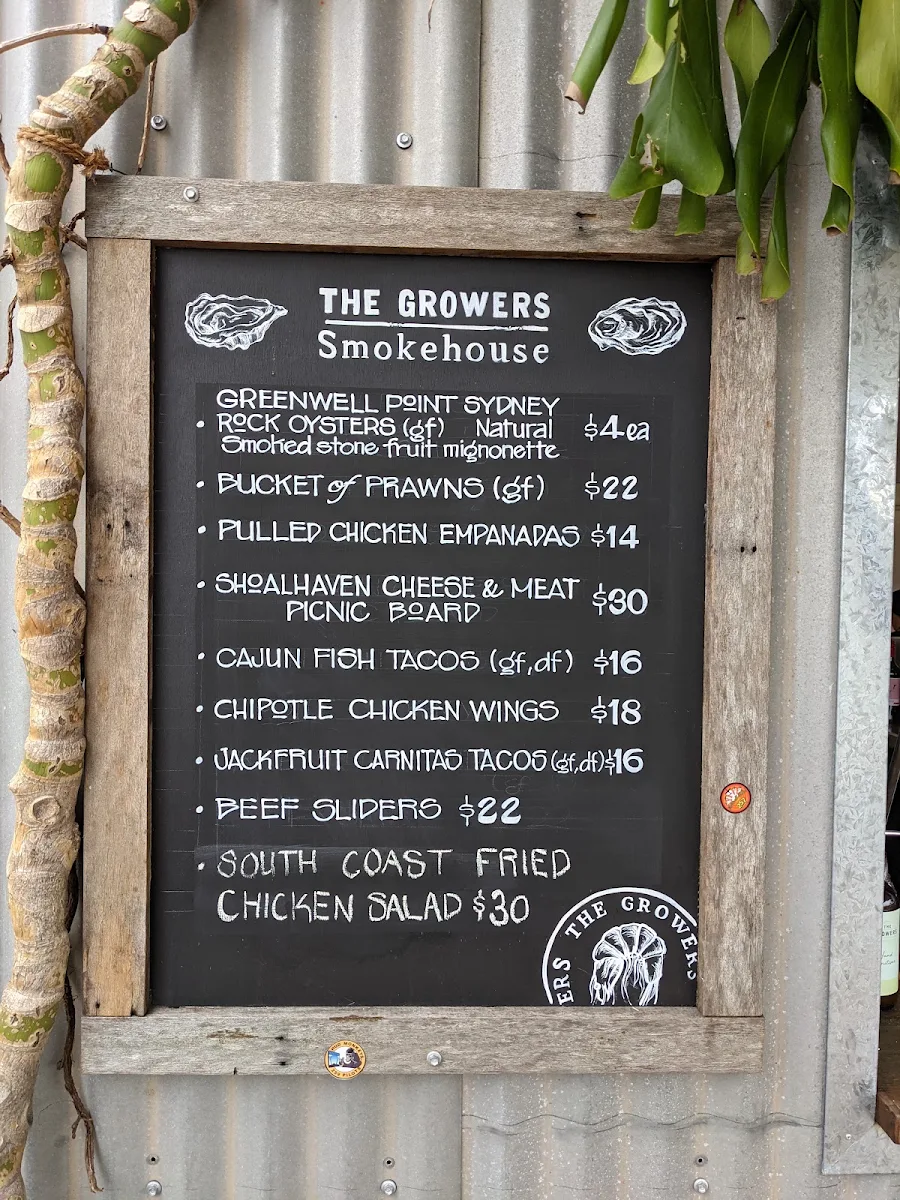 THE GROWERS
Smokehouse
GREENWELL POINT SYDNEY
• ROCK OYSTERS (gf) Natural $4ea
Smoked stone fruit mignonette
• BUCKET of PRAWNS (gf) $22
• PULLED CHICKEN EMPANADAS $14
• SHOALHAVEN CHEESE & MEAT
PICNIC BOARD $30
• CAJUN FISH TACOS (gf,df) $16
• CHIPOTLE CHICKEN WINGS $18
• JACKFRUIT CARNITAS TACOS (gf,df) $16
• BEEF SLIDERS $22
• SOUTH COAST FRIED
CHICKEN SALAD $30
ERS THE GROWERS